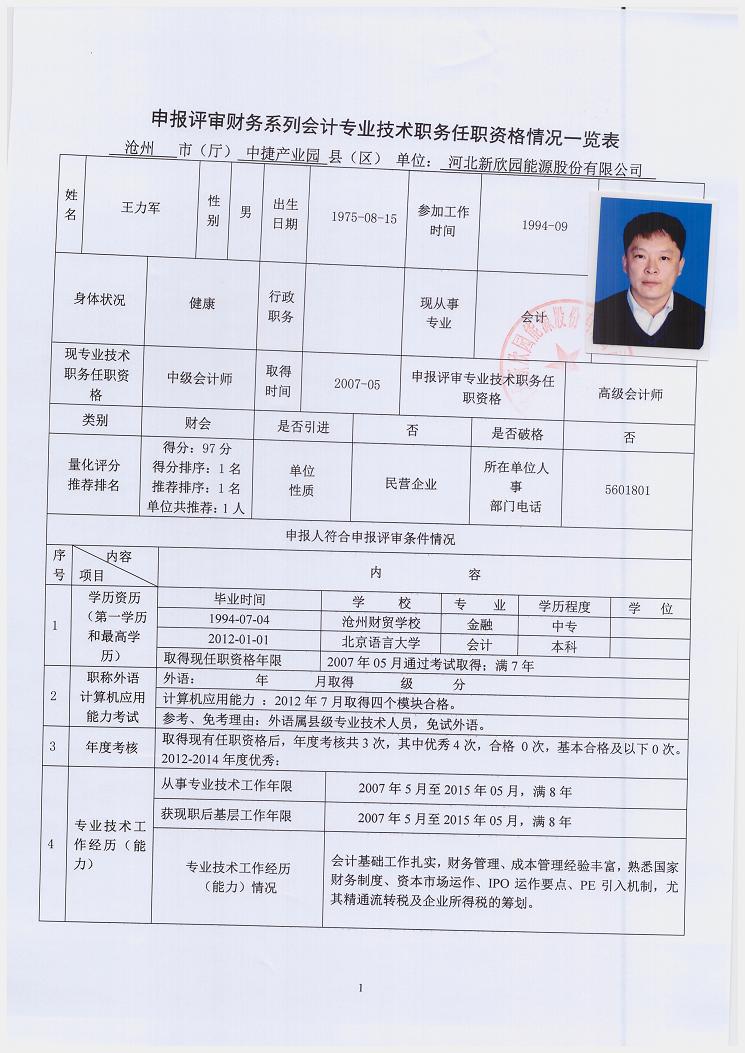 申报评审财务系列会计专业技术职务任职资格情况一览表
沧州 市（厅） 中捷产业园 县（区） 单位： 河北新欣园能源股份有限公司
姓名 王力军 性别 男 出生日期 1975-08-15 参加工作时间 1994-09
身体状况 健康 行政职务 现从事专业 会计
现专业技术职务任职资格 中级会计师 取得时间 2007-05 申报评审专业技术职务任职资格 高级会计师
类别 财会 是否引进 否 是否破格 否
量化评分推荐排名
得分：97 分
得分排序：1 名
推荐排序：1 名
单位共推荐：1 人
单位性质 民营企业 所在单位人事部门电话 5601801
申报人符合申报评审条件情况
序号 内容 项目 内 容
1 学历资历（第一学历和最高学历）
毕业时间 学 校 专 业 学历程度 学 位
1994-07-04 沧州财贸学校 金融 中专
2012-01-01 北京语言大学 会计 本科
取得现任职资格年限 2007 年 05 月通过考试取得；满 7 年
2 职称外语计算机应用能力考试
外语： 年 月取得 级 分
计算机应用能力 ：2012 年 7 月取得四个模块合格。
参考、免考理由：外语属县级专业技术人员，免试外语。
3 年度考核
取得现有任职资格后，年度考核共 3 次，其中优秀 4 次，合格 0 次，基本合格及以下 0 次。
2012-2014 年度优秀：
4 专业技术工作经历（能力）
从事专业技术工作年限 2007 年 5 月至 2015 年 05 月，满 8 年
获现职后基层工作年限 2007 年 5 月至 2015 年 05 月，满 8 年
专业技术工作经历（能力）情况
会计基础工作扎实，财务管理、成本管理经验丰富，熟悉国家
财务制度、资本市场运作、IPO 运作要点、PE 引入机制，尤
其精通流转税及企业所得税的筹划。
1